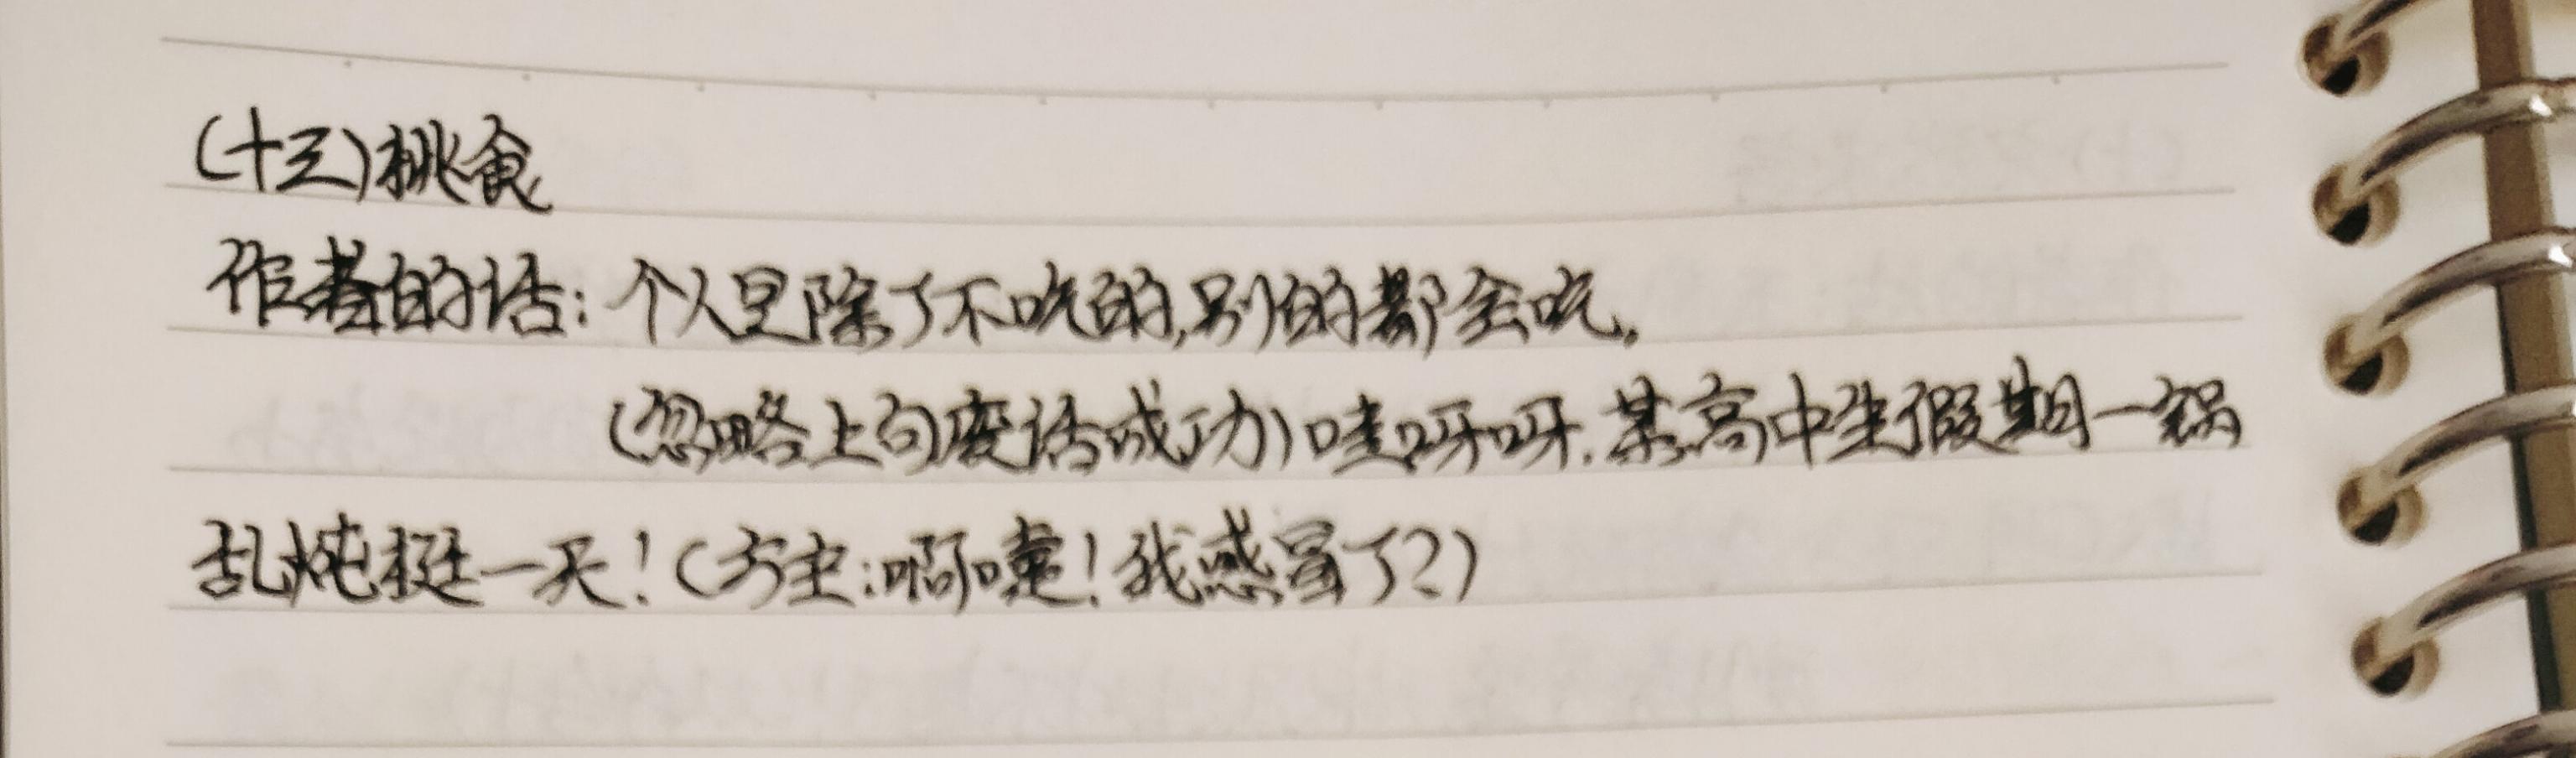 (十三)挑食
作者的话：个人呈除了不吃的,别的都会吃。
(忽略上句废话成功)哇呀呀.某高中生假期一锅
乱炖挺一天！(方主:啊嚏！我感冒了?)